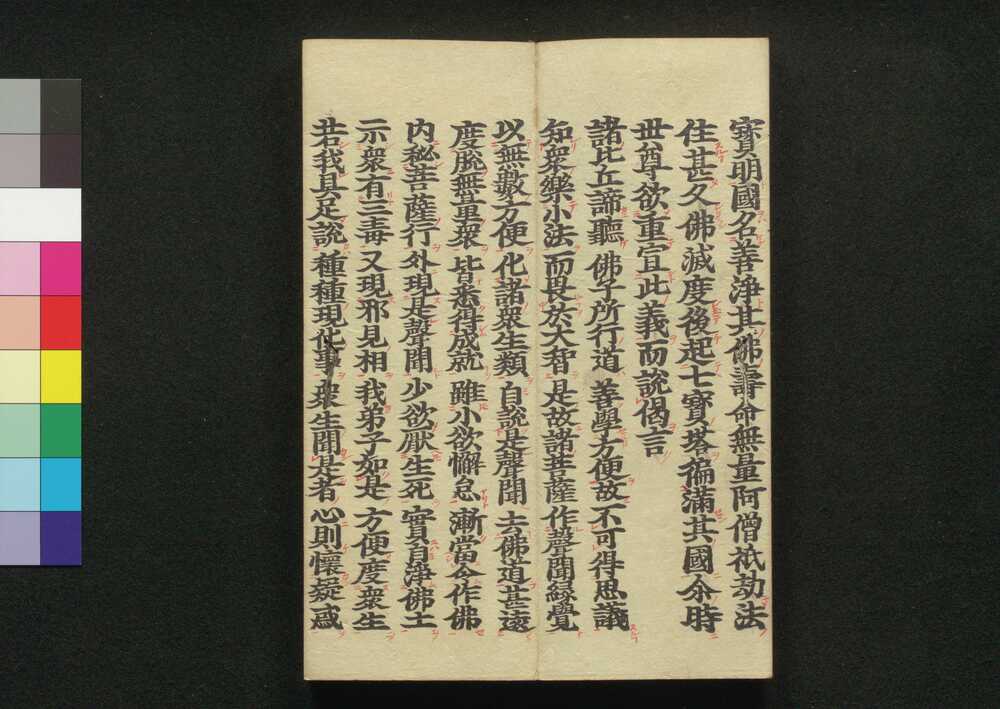 寶明國名善淨其佛壽命無量阿僧祇劫法
住甚久佛滅度後起七寶塔徧滿其國尒時
世尊欲重宣此義而說偈言
諸比丘諦聽 佛子所行道 善學方便故 不可得思議
知衆樂小法 而畏於大智 是故諸菩薩 作聲聞緣覺
以無數方便 化諸衆生類 自說是聲聞 去佛道甚遠
度脫無量衆 皆悉得成就 雖小欲懈怠 漸當令作佛
内秘菩薩行 外現是聲聞 少欲厭生死 實自淨佛土
示衆有三毒 又現邪見相 我弟子如是 方便度衆生
若我具足說 種種現化事 衆生聞是者 心則懷疑惑